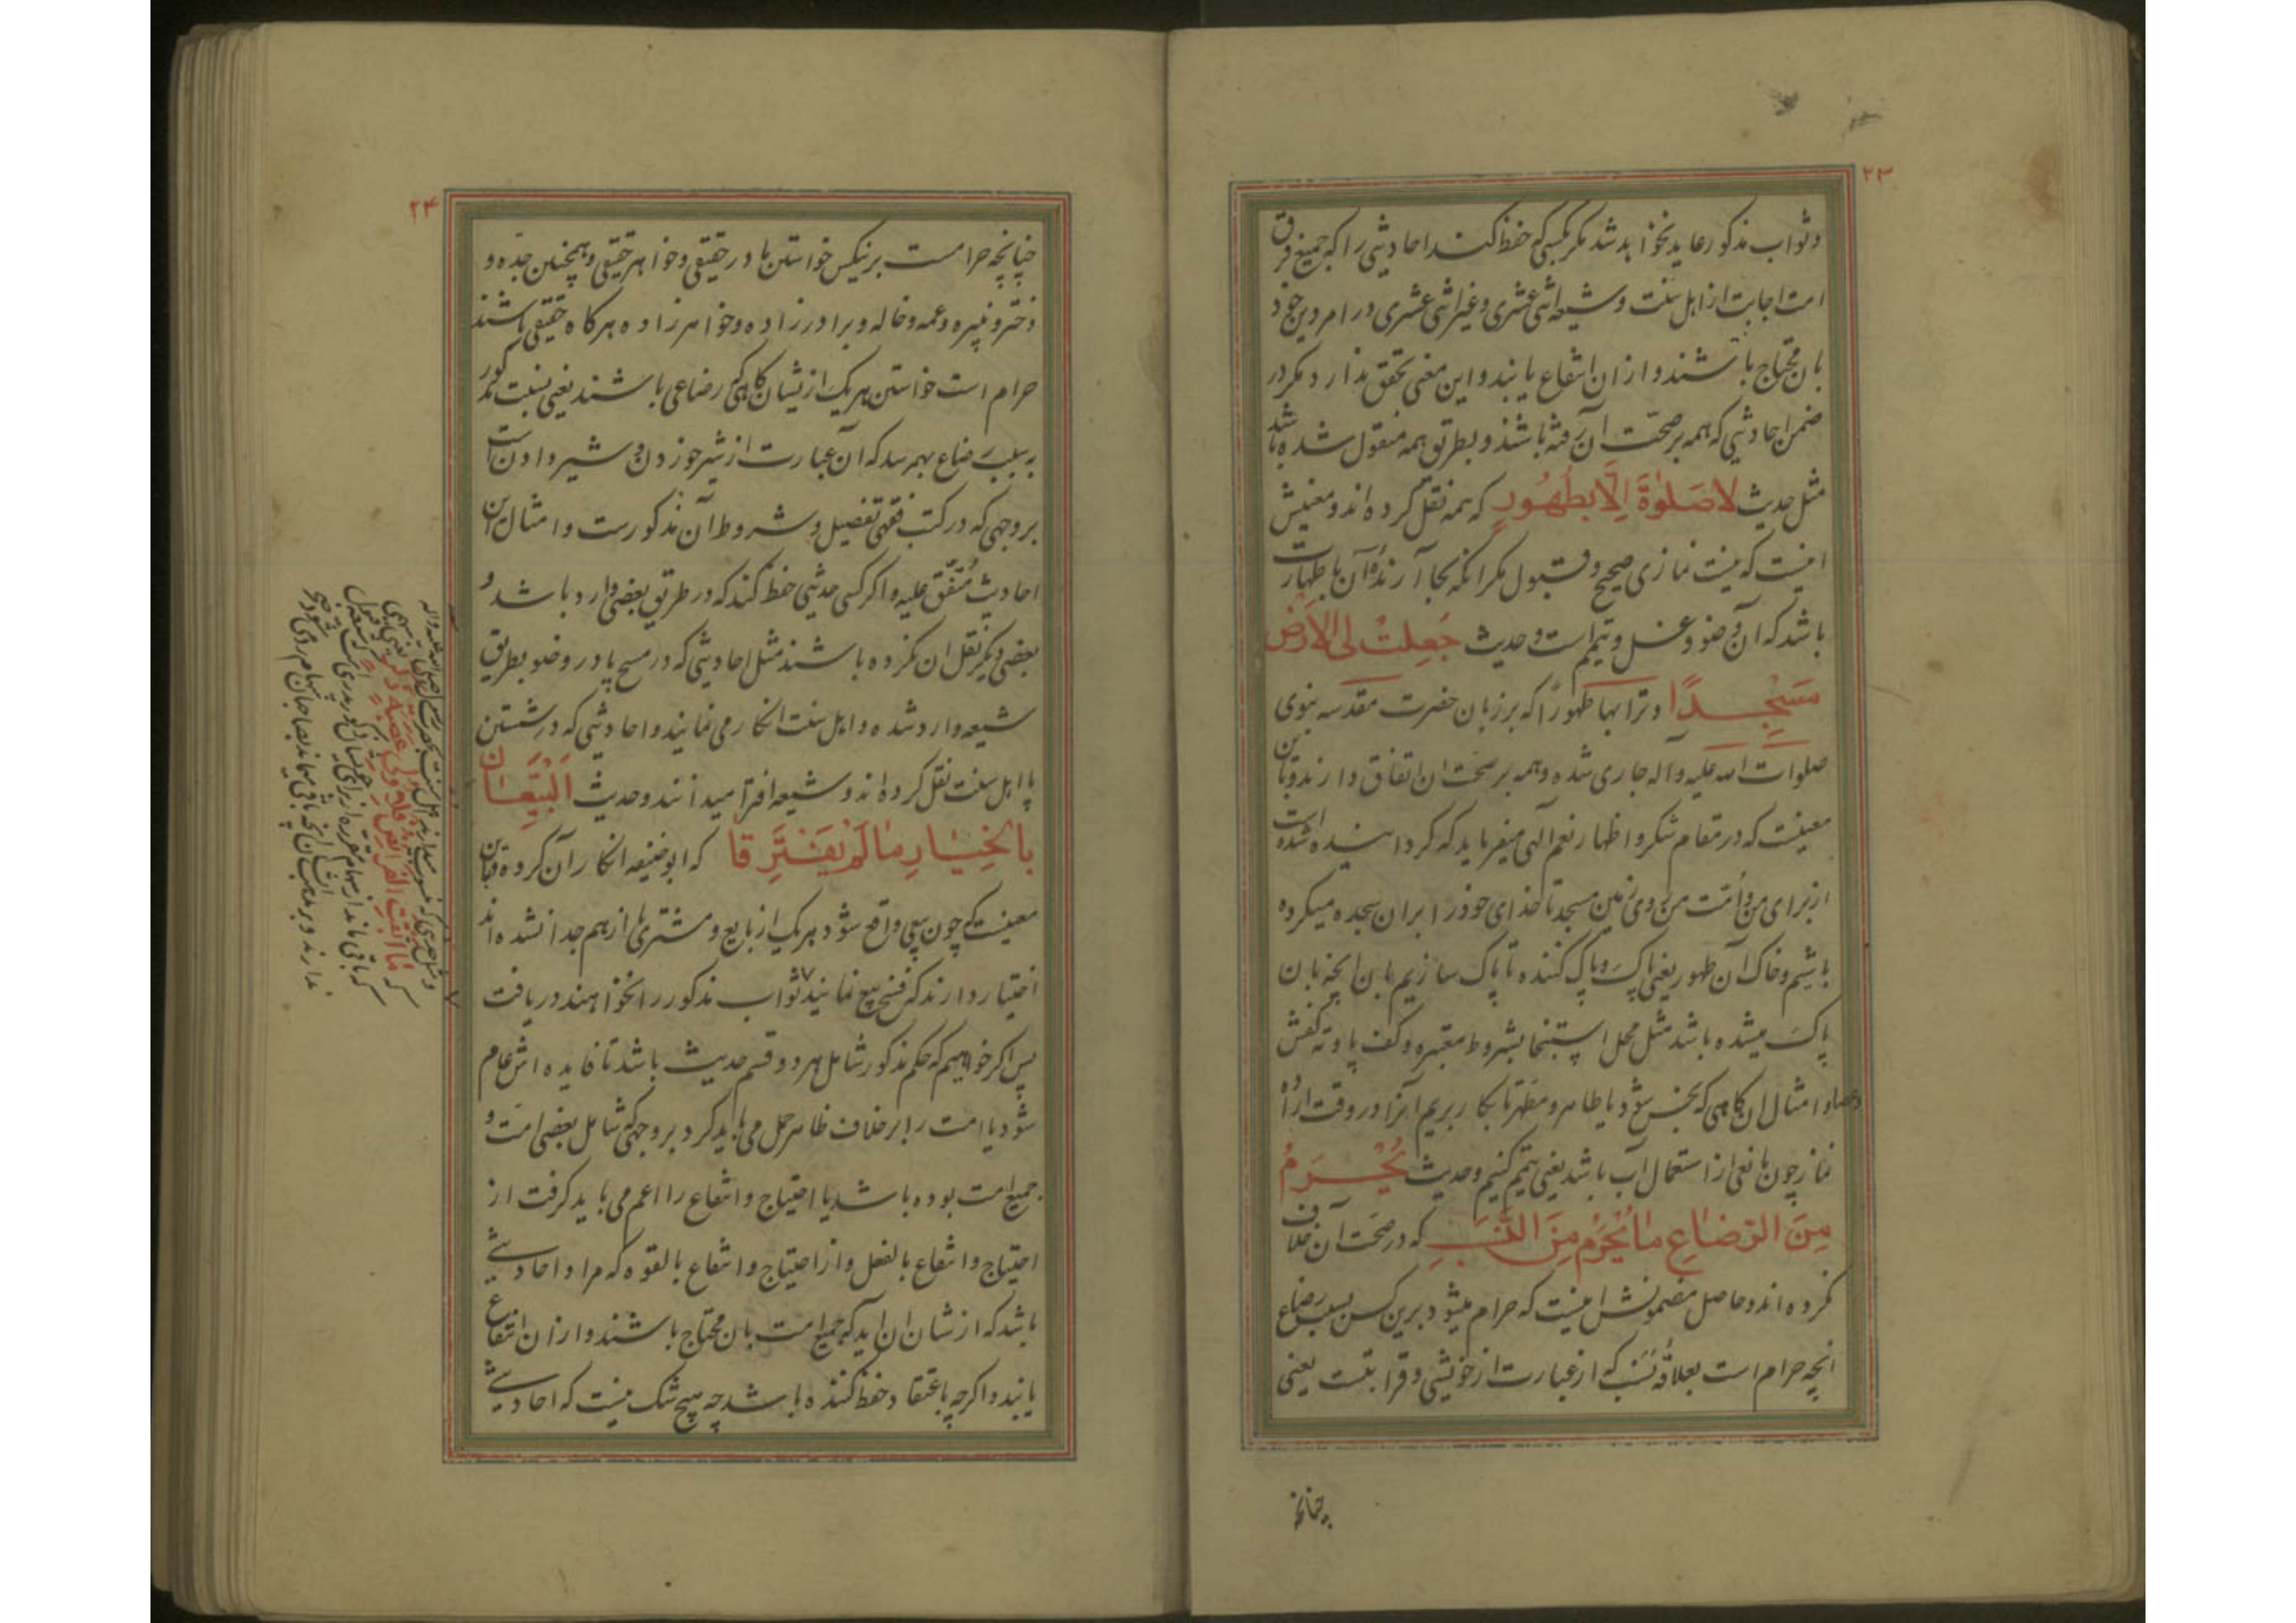 ۲۳
وثواب مذکور عاید نخواهد شد مکر بکسی که حفظ کند احادیثی را که جمیع فرق
امت اجابت از اهل سنت و شیعه اثنی عشری و غیر اثنی عشری در امر دین خود
بان محتاج باشند و از ان انتفاع یابند و این معنی تحقق ندارد مکر در
ضمن احادیثی که همه بر صحت آن رفته باشند و بطریق همه منقول شده باشد
مثل حدیث لا صَلوٰةَ اِلّا بِطَهُورٍ که همه نقل کرده اند و معنیش
اینست که نیست نمازی صحیح و قبول مکر انکه بجا آرندهٔ آن با طهارت
باشد که آن وضو و غسل و تیمم است و حدیث جُعِلَتْ لِیَ الاَرْضُ
مَسْجِدًا و ترابها طهورًا که بر زبان حضرت مقدسه نبوی
صلوات الله علیه و آله جاری شده و همه بر صحت ان اتفاق دارند و باین
معینست که در مقام شکر و اظهار نعم الهی میفرماید که کردانیده شده است
از برای من و امت من روی زمین مسجد تا خدای خود را بران سجده میکرده
باشیم و خاک آن طهور یعنی پاک و پاک کننده تا پاک سازیم بان انچه بان
پاک میشده باشد مثل محل استنجا بشروط معتبره و کف پا و ته کفش
و عصا و امثال ان کاهی که نجس شود یا طاهر و مطهر تا بکار بریم انرا در وقت اراده
نماز چون مانعی از استعمال آب باشد یعنی تیمم کنیم و حدیث یُحْرَمُ
مِنَ الرَّضاعِ ما یُحْرَمُ مِنَ النَّسَبِ که در صحت آن خلاف
نکرده اند و حاصل مضمونش اینست که حرام میشود برین کس بسبب رضاع
انچه حرام است بعلاقهٔ نسب که از عبارت از خویشی و قرابتست یعنی
چنانچه
۲۴
چنانچه حرامست برینکس خواستن مادر حقیقی و خواهر حقیقی و همچنین جده و
دختر و نبیره و عمه و خاله و برادرزاده و خواهرزاده هرکاه حقیقی باشند
حرام است خواستن هر یک از یشان کاهی که رضاعی باشند یعنی نسبت مذکور
به سبب رضاع بهم رسد که آن عبارت از شیر خوردن و شیر دادن است
بر وجهی که در کتب فقهی تفصیل و شروط آن مذکورست و امثال این
احادیث مُتّفَق علیه و اکر کسی حدیثی حفظ کند که در طریق بعضی وارد باشد و
بعضی دیکر نقل ان نکرده باشند مثل احادیثی که در مسح پا در وضو بطریق
شیعه وارد شده و اهل سنت انکار می نمایند و احادیثی که در شستن
پا اهل سنت نقل کرده اند و شیعه افترا میدانند و حدیث اَلبَیِّعانِ
بِالخِیارِ ما لَمْ یَفْتَرِقا که ابوحنیفه انکار آن کرده و باین
معینست که چون بیعی واقع شود هر یک از بایع و مشتری تا از هم جدا نشده اند
اختیار دارند که فسخ بیع نمایند ثواب مذکور را نخواهند دریافت
پس اکر خواهیم که حکم مذکور شامل هر دو قسم حدیث باشد تا فایده اش عام
شود یا امت را بر خلاف ظاهر حمل می باید کرد بر وجهی که شامل بعضی امت و
جمیع امت بوده باشد یا احتیاج و انتفاع را اعم می باید کرفت از
احتیاج و انتفاع بالفعل و از احتیاج و انتفاع بالقوه که مراد احادیثی
باشد که از شان ان اید که جمیع امت بان محتاج باشند و از ان انتفاع
یابند و اکرچه باعتقاد حفظ کننده باشد چه هیچ شک نیست که احادیثی
که ما ابقت الفرائض فلاولی عصبة ذکر
که باقی ماند از سهام مقرره از برای
ندارند و بر مذهب